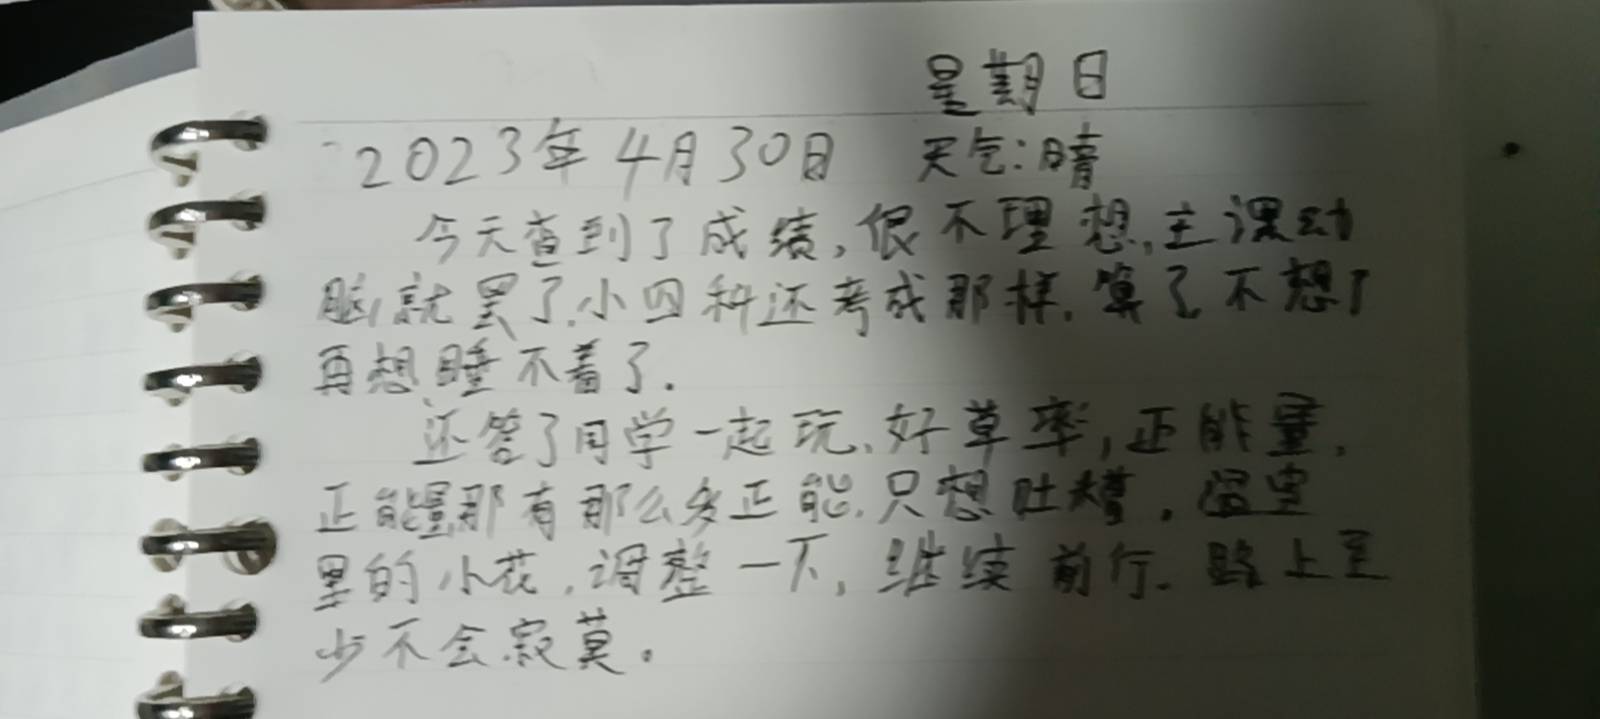 星期日
2023年4月30日 天气:晴
今天查到了成绩,很不理想,主课动
脑,就罢了.小四科还考成那样.算了不想了
再想睡不着了.
还答了同学一起玩,好草率,正能量,
正能量那有那么多正能.只想吐槽.温室
里的小花,调整一下,继续前行.路上至
少不会寂莫。